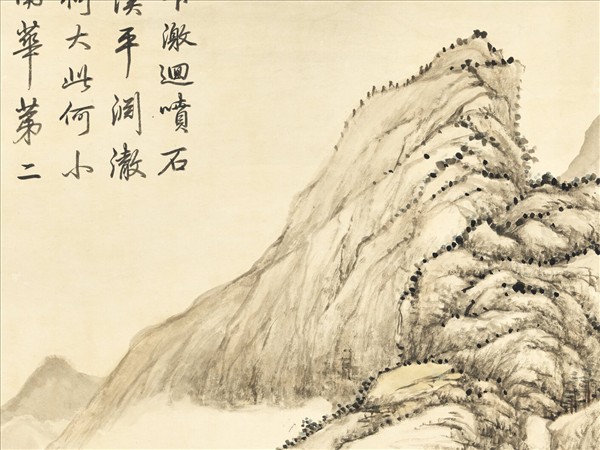 激迴噴石
溪平澈
何大此何小
南華第二